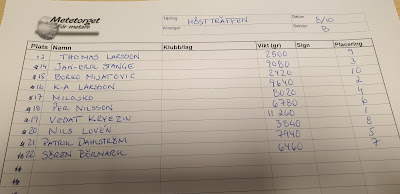 Metetorget
för metare
Tävling HÖSTTRÄFFEN Datum 5/10
Arrangör B
Plats Namn Klubb/lag Vikt (gr) Sign Placering
13 THOMAS LARSSON 2500 9
14 JAN-ERIK STANGE 9080 3
15 BORKO MIJATOVIC 2420 10
16 K-A LARSSON 9640 2
17 MILOJKO 8020 4
18 PER NILSSON 6780 6
19 VEDAT KRYEZIU 11260 1
20 NILS LOVÉN 3840 8
21 PATRIK DAHLSTRÖM 7940 5
22 SÖREN 6460 7